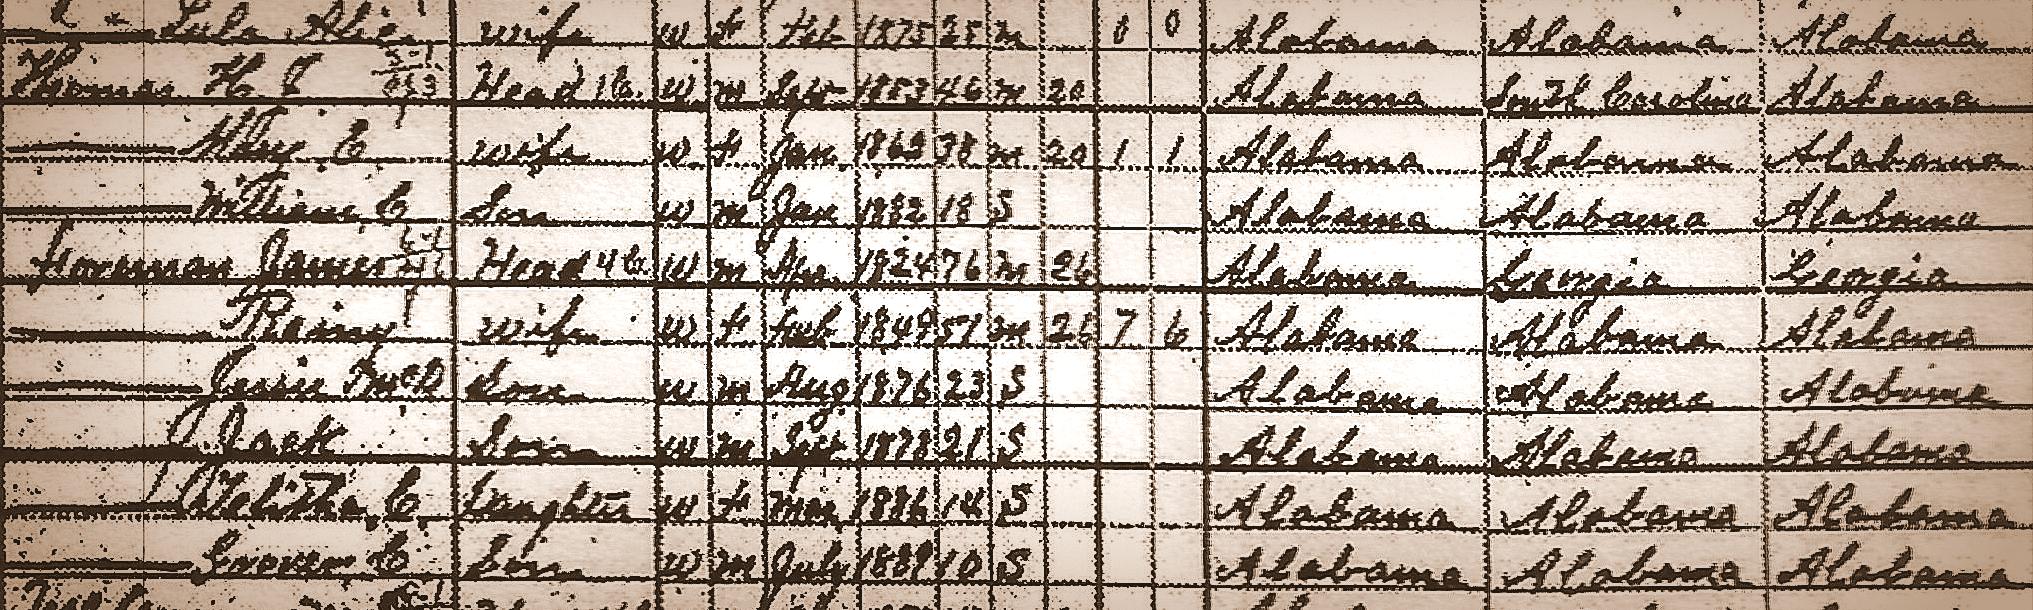 Lula Alice wife W F Feb 1875 25 M 0 0 Alabama Alabama Alabama
Thomas H J Head W M Sep 1853 46 M 20 Alabama South Carolina Alabama
Mary E wife W F Jan 1862 38 M 20 1 1 Alabama Alabama Alabama
William C Son W M Jan 1882 18 S Alabama Alabama Alabama
James Head W M Apr 1824 76 M 26 Alabama Georgia Georgia
wife W F Feb 1849 51 M 26 7 6 Alabama Alabama Alabama
Jessie Son W M Aug 1876 23 S Alabama Alabama Alabama
Jack Son W M Sep 1878 21 S Alabama Alabama Alabama
Telitha C Daughter W F Mar 1886 14 S Alabama Alabama Alabama
Grover C Son W M July 1889 10 S Alabama Alabama Alabama